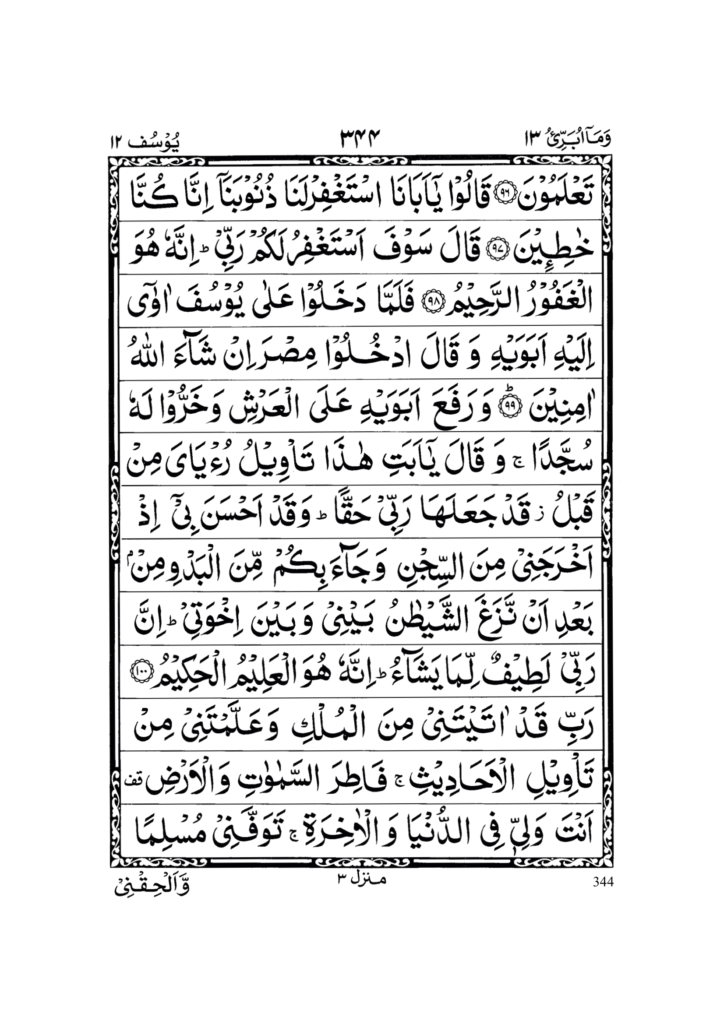 وَمَآ اُبَرِّئُ ١٣ ٣٤٤ يُوْسُف ١٢
تَعْلَمُوْنَ ﴿٩٦﴾ قَالُوْا يٰۤاَبَانَا اسْتَغْفِرْلَنَا ذُنُوْبَنَاۤ اِنَّا كُنَّا
خٰطِـِٕيْنَ ﴿٩٧﴾ قَالَ سَوْفَ اَسْتَغْفِرُ لَكُمْ رَبِّيْ ؕ اِنَّهٗ هُوَ
الْغَفُوْرُ الرَّحِيْمُ ﴿٩٨﴾ فَلَمَّا دَخَلُوْا عَلٰى يُوْسُفَ اٰوٰٓى
اِلَيْهِ اَبَوَيْهِ وَ قَالَ ادْخُلُوْا مِصْرَ اِنْ شَآءَ اللّٰهُ
اٰمِنِيْنَ ﴿٩٩﴾ؕ وَ رَفَعَ اَبَوَيْهِ عَلَى الْعَرْشِ وَ خَرُّوْا لَهٗ
سُجَّدًا ۚ وَ قَالَ يٰۤاَبَتِ هٰذَا تَاْوِيْلُ رُءْيَايَ مِنْ
قَبْلُ ؗ قَدْ جَعَلَهَا رَبِّيْ حَقًّا ؕ وَ قَدْ اَحْسَنَ بِيْۤ اِذْ
اَخْرَجَنِيْ مِنَ السِّجْنِ وَ جَآءَ بِكُمْ مِّنَ الْبَدْوِ مِنْۢ
بَعْدِ اَنْ نَّزَغَ الشَّيْطٰنُ بَيْنِيْ وَ بَيْنَ اِخْوَتِيْ ؕ اِنَّ
رَبِّيْ لَطِيْفٌ لِّمَا يَشَآءُ ؕ اِنَّهٗ هُوَ الْعَلِيْمُ الْحَكِيْمُ ﴿١٠٠﴾
رَبِّ قَدْ اٰتَيْتَنِيْ مِنَ الْمُلْكِ وَ عَلَّمْتَنِيْ مِنْ
تَاْوِيْلِ الْاَحَادِيْثِ ۚ فَاطِرَ السَّمٰوٰتِ وَ الْاَرْضِ قف
اَنْتَ وَلِيّٖ فِي الدُّنْيَا وَ الْاٰخِرَةِ ۚ تَوَفَّنِيْ مُسْلِمًا
344 منزل ٣ وَّ اَلْحِقْنِيْ